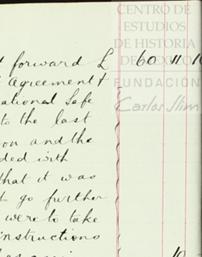 CENTRO DE
ESTUDIOS
DE HISTORIA
DE
FUNDACIÓN
Carlos Slim
forward £ 60 11 10
Agreement
ational Safe
to the last
on and the
ded with
that it was
to go further
were to take
instructions
10